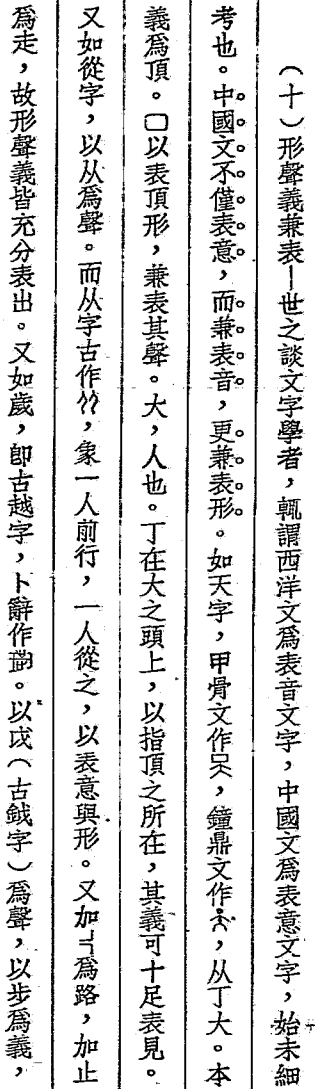 （十）形聲義兼表—世之談文字學者，輒謂西洋文爲表音文字，中國文爲表意文字，始未細
考也。中國文不僅表意，而兼表音，更兼表形。如天字，甲骨文作，鐘鼎文作，从丁大。本
義爲頂。口以表頂形，兼表其聲。大，人也。丁在大之頭上，以指頂之所在，其義可十足表見。
又如從字，以从爲聲。而从字古作，象一人前行，一人從之，以表意與形。又加爲路，加止
爲走，故形聲義皆充分表出。又如歲，卽古越字，卜辭作。以戉（古鉞字）爲聲，以步爲義，